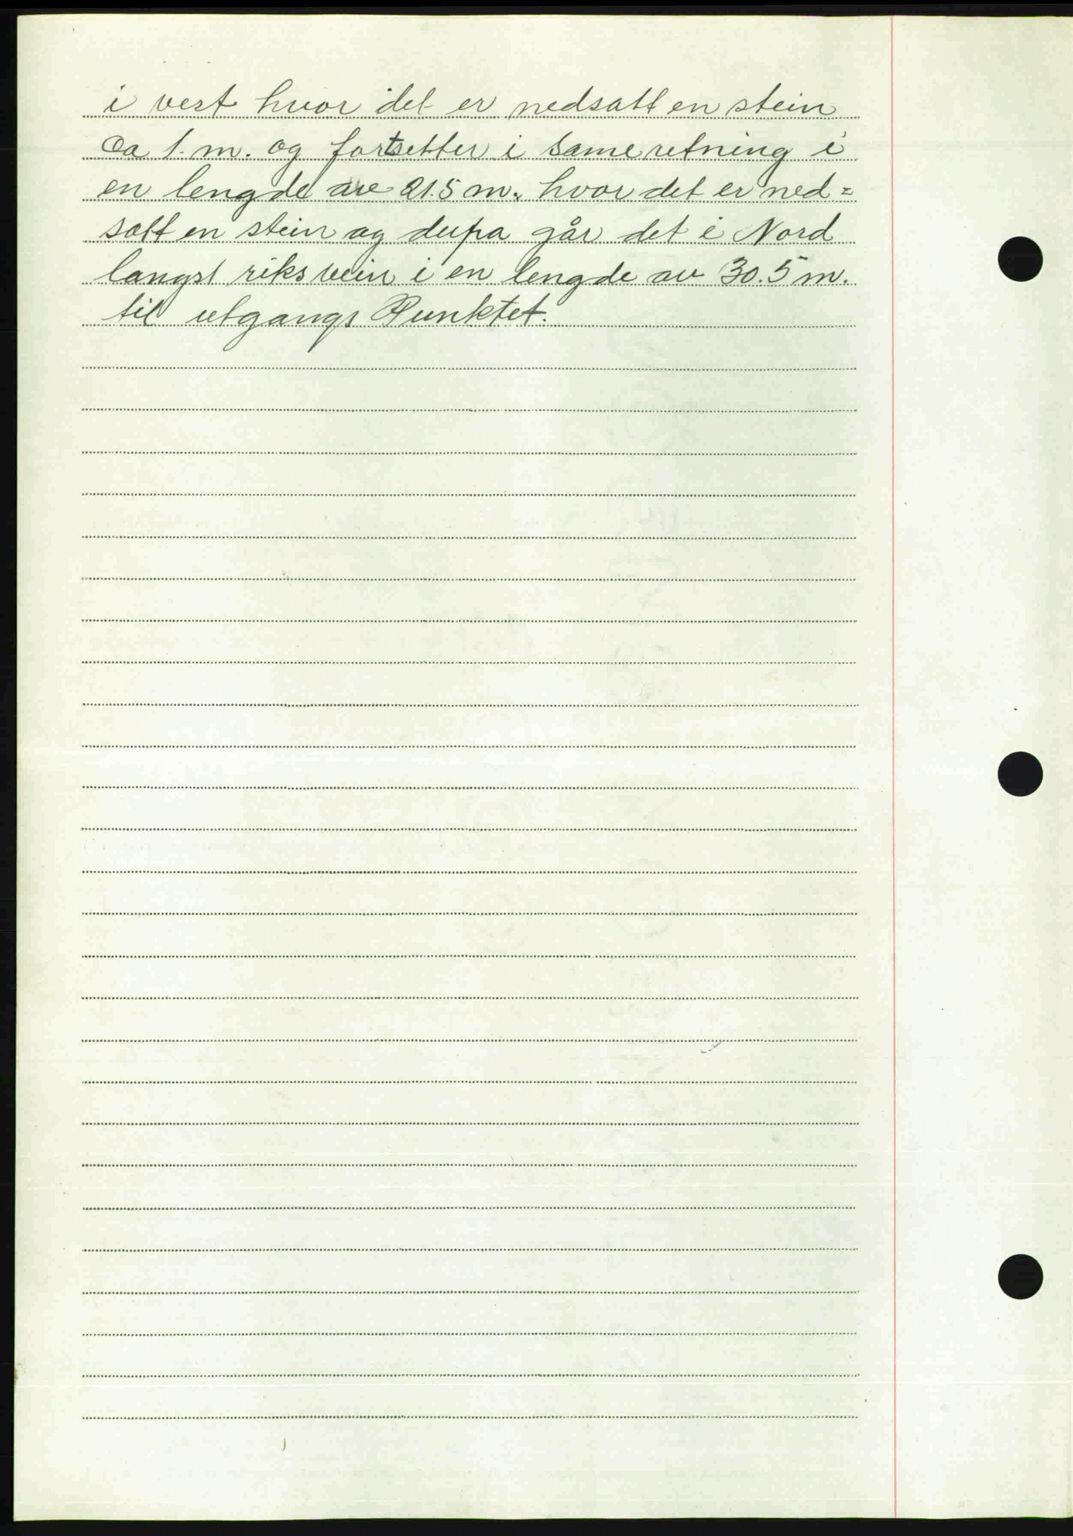 i vest hvor det er nedsatt en stein
ca 1. m. og fortsetter i same retning i
en lengde ave 21.5 m. hvor det er ned=
satt en stein og derpa går det i Nord
langst riksvein i en lengde av 30.5 m.
til utgangs Punktet.